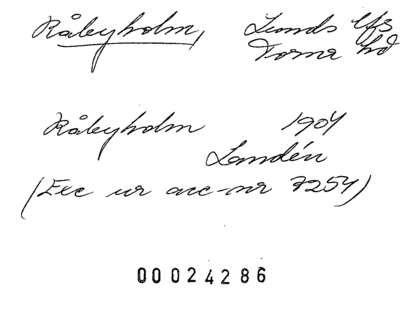 Råbyholm, Lunds lfs
Torna hd
Råbyholm 1904
Landén
(Exc ur acc-nr 7254)
00024286